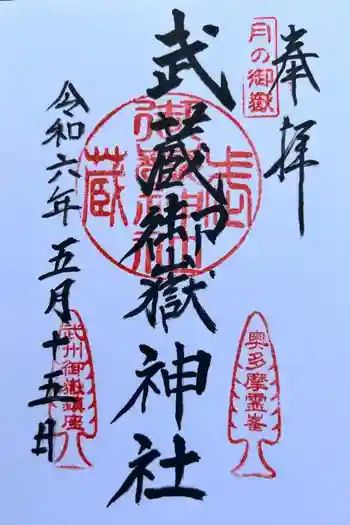 奉拝
月の御嶽
武蔵御嶽神社
武蔵御嶽神社
奥多摩霊峯
令和六年五月十五日
武州御嶽鎮座